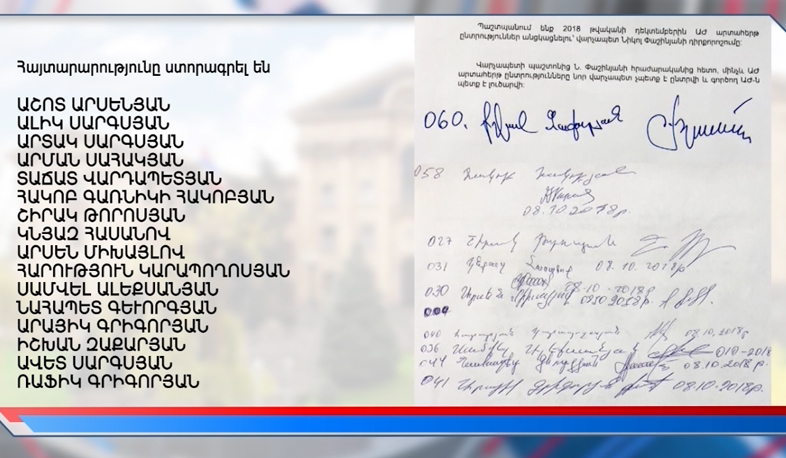 Հայտարարությունը ստորագրել են
ԱՇՈՏ ԱՐՍԵՆՅԱՆ
ԱԼԻԿ ՍԱՐԳՍՅԱՆ
ԱՐՏԱԿ ՍԱՐԳՍՅԱՆ
ԱՐՄԱՆ ՍԱՀԱԿՅԱՆ
ՏԱՃԱՏ ՎԱՐԴԱՊԵՏՅԱՆ
ՀԱԿՈԲ ԳԱՌՆԻԿԻ ՀԱԿՈԲՅԱՆ
ՇԻՐԱԿ ԹՈՐՈՍՅԱՆ
ԿՆՅԱԶ ՀԱՍԱՆՈՎ
ԱՐՍԵՆ ՄԻԽԱՅԼՈՎ
ՀԱՐՈՒԹՅՈՒՆ ԿԱՐԱՊՈՂՈՍՅԱՆ
ՍԱՄՎԵԼ ԱԼԵՔՍԱՆՅԱՆ
ՆԱՀԱՊԵՏ ԳԵՒՈՐԳՅԱՆ
ԱՐԱՅԻԿ ԳՐԻԳՈՐՅԱՆ
ԻՇԽԱՆ ԶԱՔԱՐՅԱՆ
ԱՎԵՏ ՍԱՐԳՍՅԱՆ
ՌԱՖԻԿ ԳՐԻԳՈՐՅԱՆ
Պաշտպանում ենք 2018 թվականի դեկտեմբերին ԱԺ արտահերթ
ընտրություններ անցկացնելու՝ վարչապետ Նիկոլ Փաշինյանի դիրքորոշումը:
Վարչապետի պաշտոնից Ն. Փաշինյանի հրաժարականից հետո, մինչև ԱԺ
արտահերթ ընտրությունները նոր վարչապետ չպետք է ընտրվի և գործող ԱԺ-ն
պետք է լուծարվի:
060.
058
08.10.2018թ.
027 Շիրակ Թորոսյան
031 08.10.2018թ.
030 08.10.2018թ.
040 08.10.2018թ
036
044 08.10.2018թ.
041 08.10.2018թ.